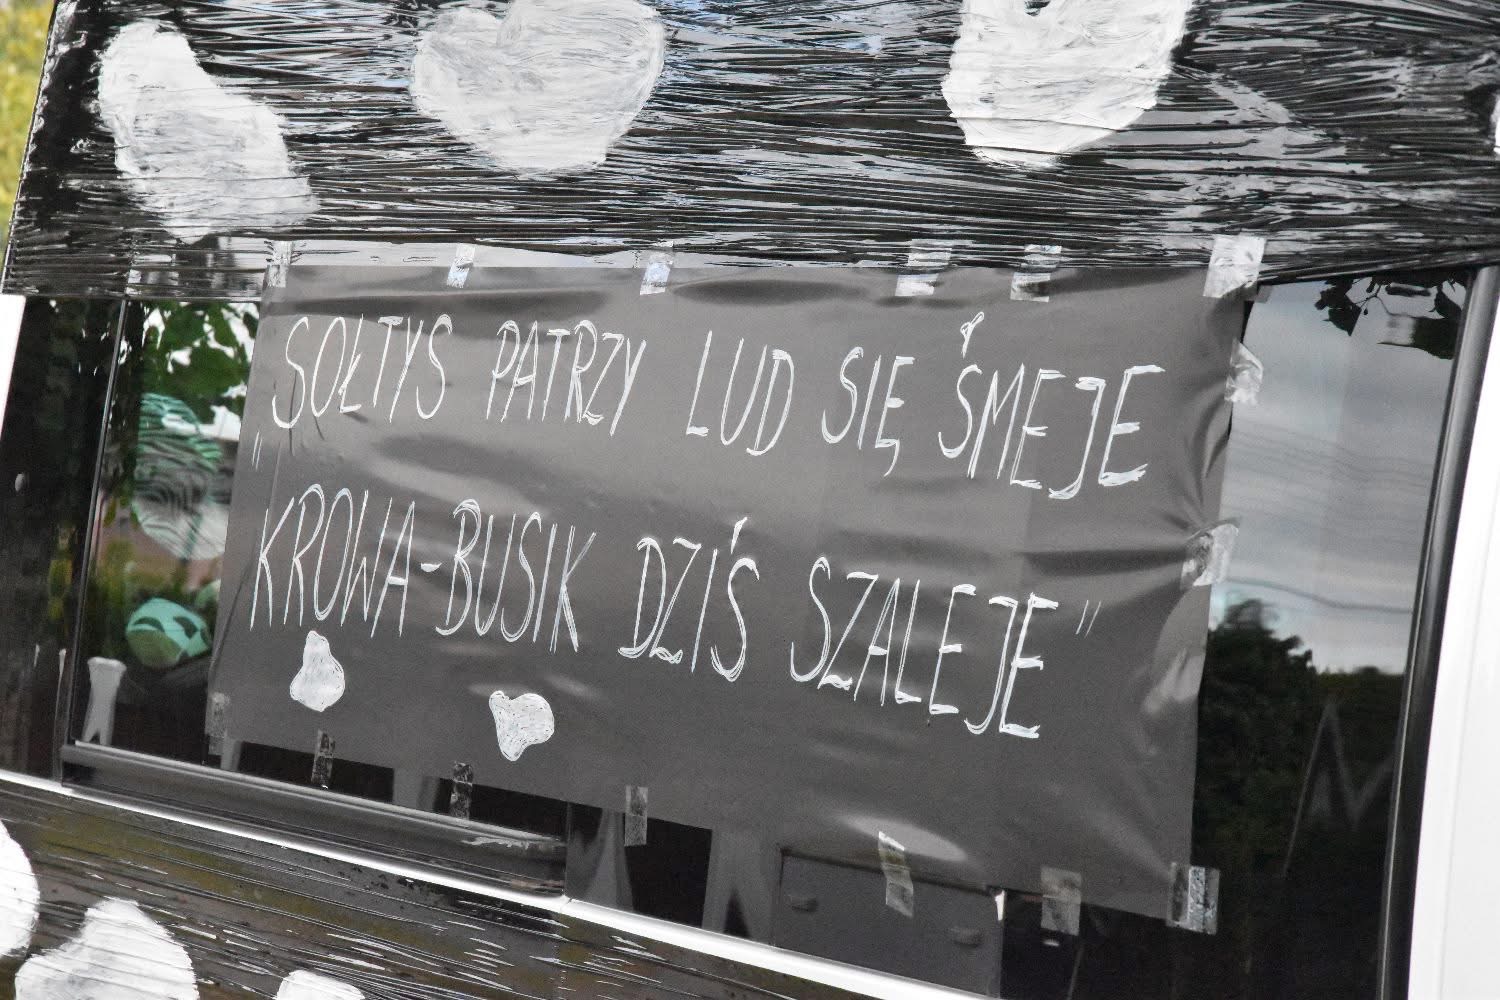 „SOŁTYS PATRZY LUD SIĘ ŚMEJE
KROWA-BUSIK DZIŚ SZALEJE”